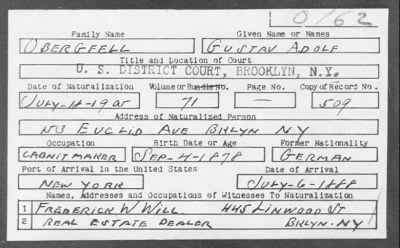 O162
Family Name Given Name or Names
OBERGFELL GUSTAV ADOLF
Title and Location of Court
U. S. DISTRICT COURT, BROOKLYN, N.Y.
Date of Naturalization Volume or Bundle No. Page No. Copy of Record No.
JULY-14-1905 71 — 509
Address of Naturalized Person
EUCLID AVE BKLYN NY
Occupation Birth Date or Age Former Nationality
CABNITMAKER SEP-4-1878 GERMAN
Port of Arrival in the United States Date of Arrival
NEW YORK JULY-6-1888
Names, Addresses and Occupations of Witnesses To Naturalization
1 FREDERICK W WILL 445 LINWOOD ST
2 REAL ESTATE DEALER BKLYN-NY